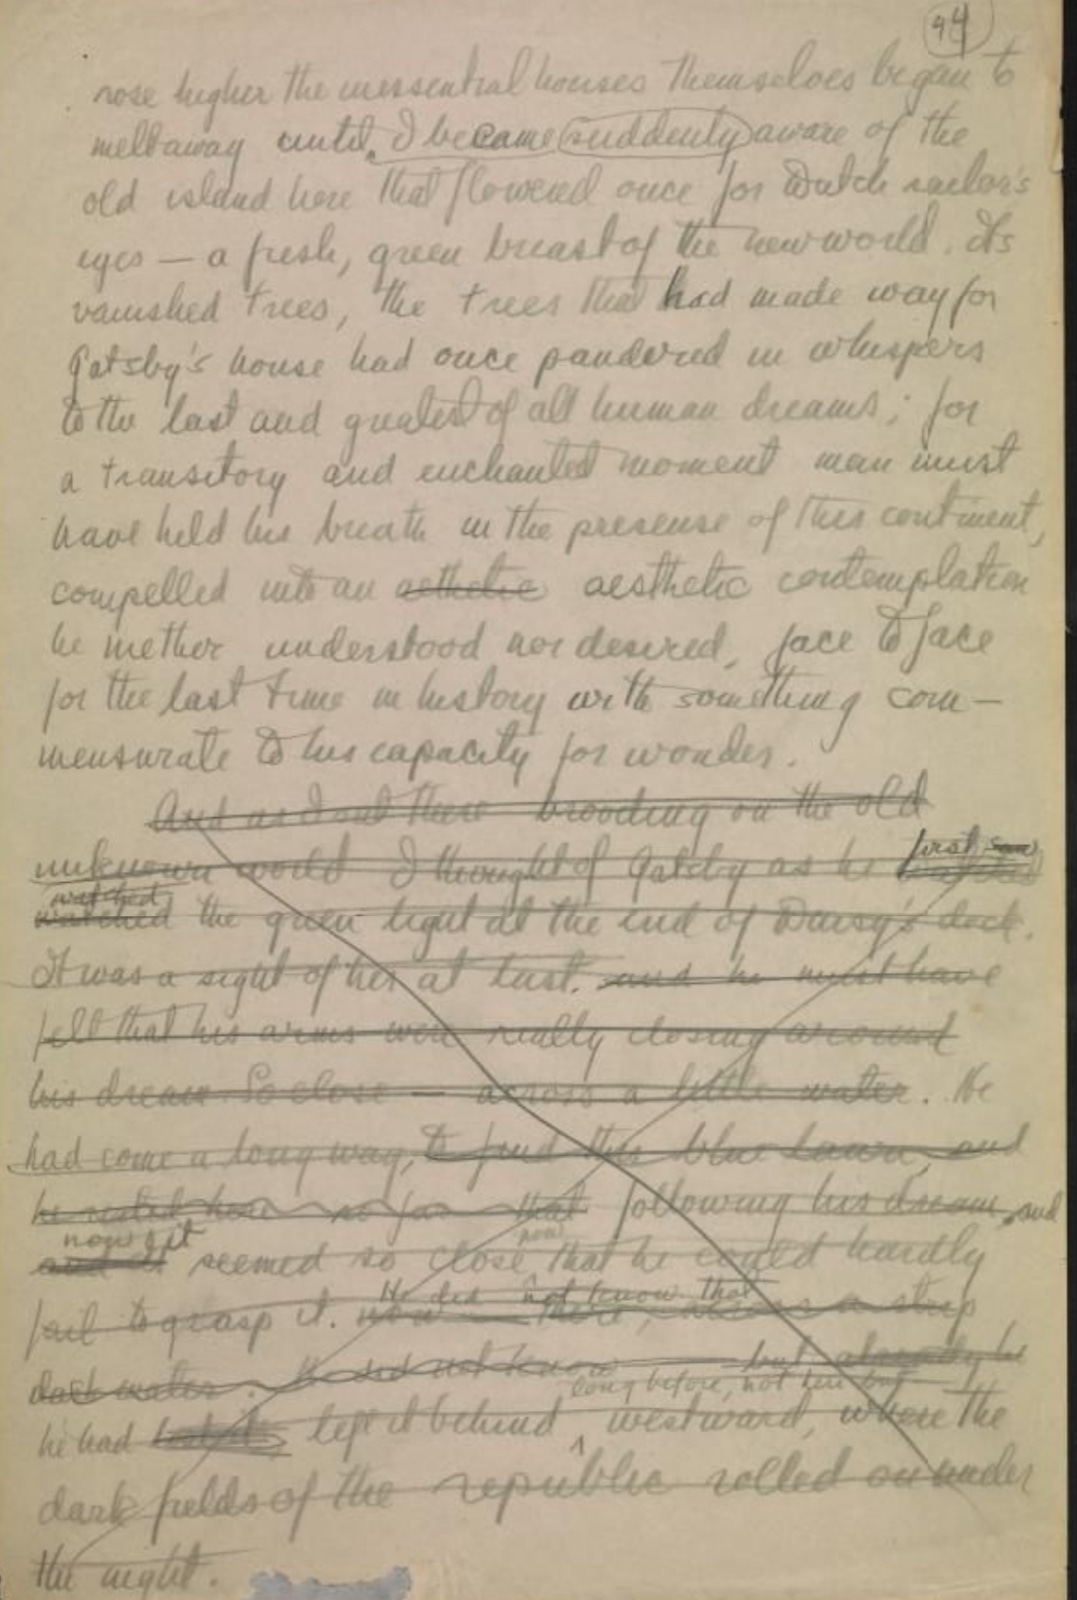 94
rose higher the inessential houses themselves began to
melt away until I became suddenly aware of the
old island here that flowered once for Dutch sailor's
eyes — a fresh, green breast of the new world. Its
vanished trees, the trees that had made way for
Gatsby's house had once pandered in whispers
to the last and greatest of all human dreams; for
a transitory and enchanted moment man must
have held his breath in the presense of this continent,
compelled into an asthetic aesthetic contemplation
he niether understood nor desired, face to face
for the last time in history with something com—
mensurate to his capacity for wonder.
And as I sat there brooding on the old
unknown world I thought of Gatsby as he first saw
watched
watched the green light at the end of Daisy's dock.
It was a sight of her at last. and he must have
felt that his arms were really closing around
his dream So close — across a little water. He
had come a long way, to find this blue lawn, and
he rested here so far that following his dream, and
now it now
and it seemed so close that he could hardly
He did not know that
fail to grasp it. now there, across a strip
dark water. He did not know but already he
long before, not here but
he had left it behind westward, where the
dark fields of the republic rolled on under
the night.